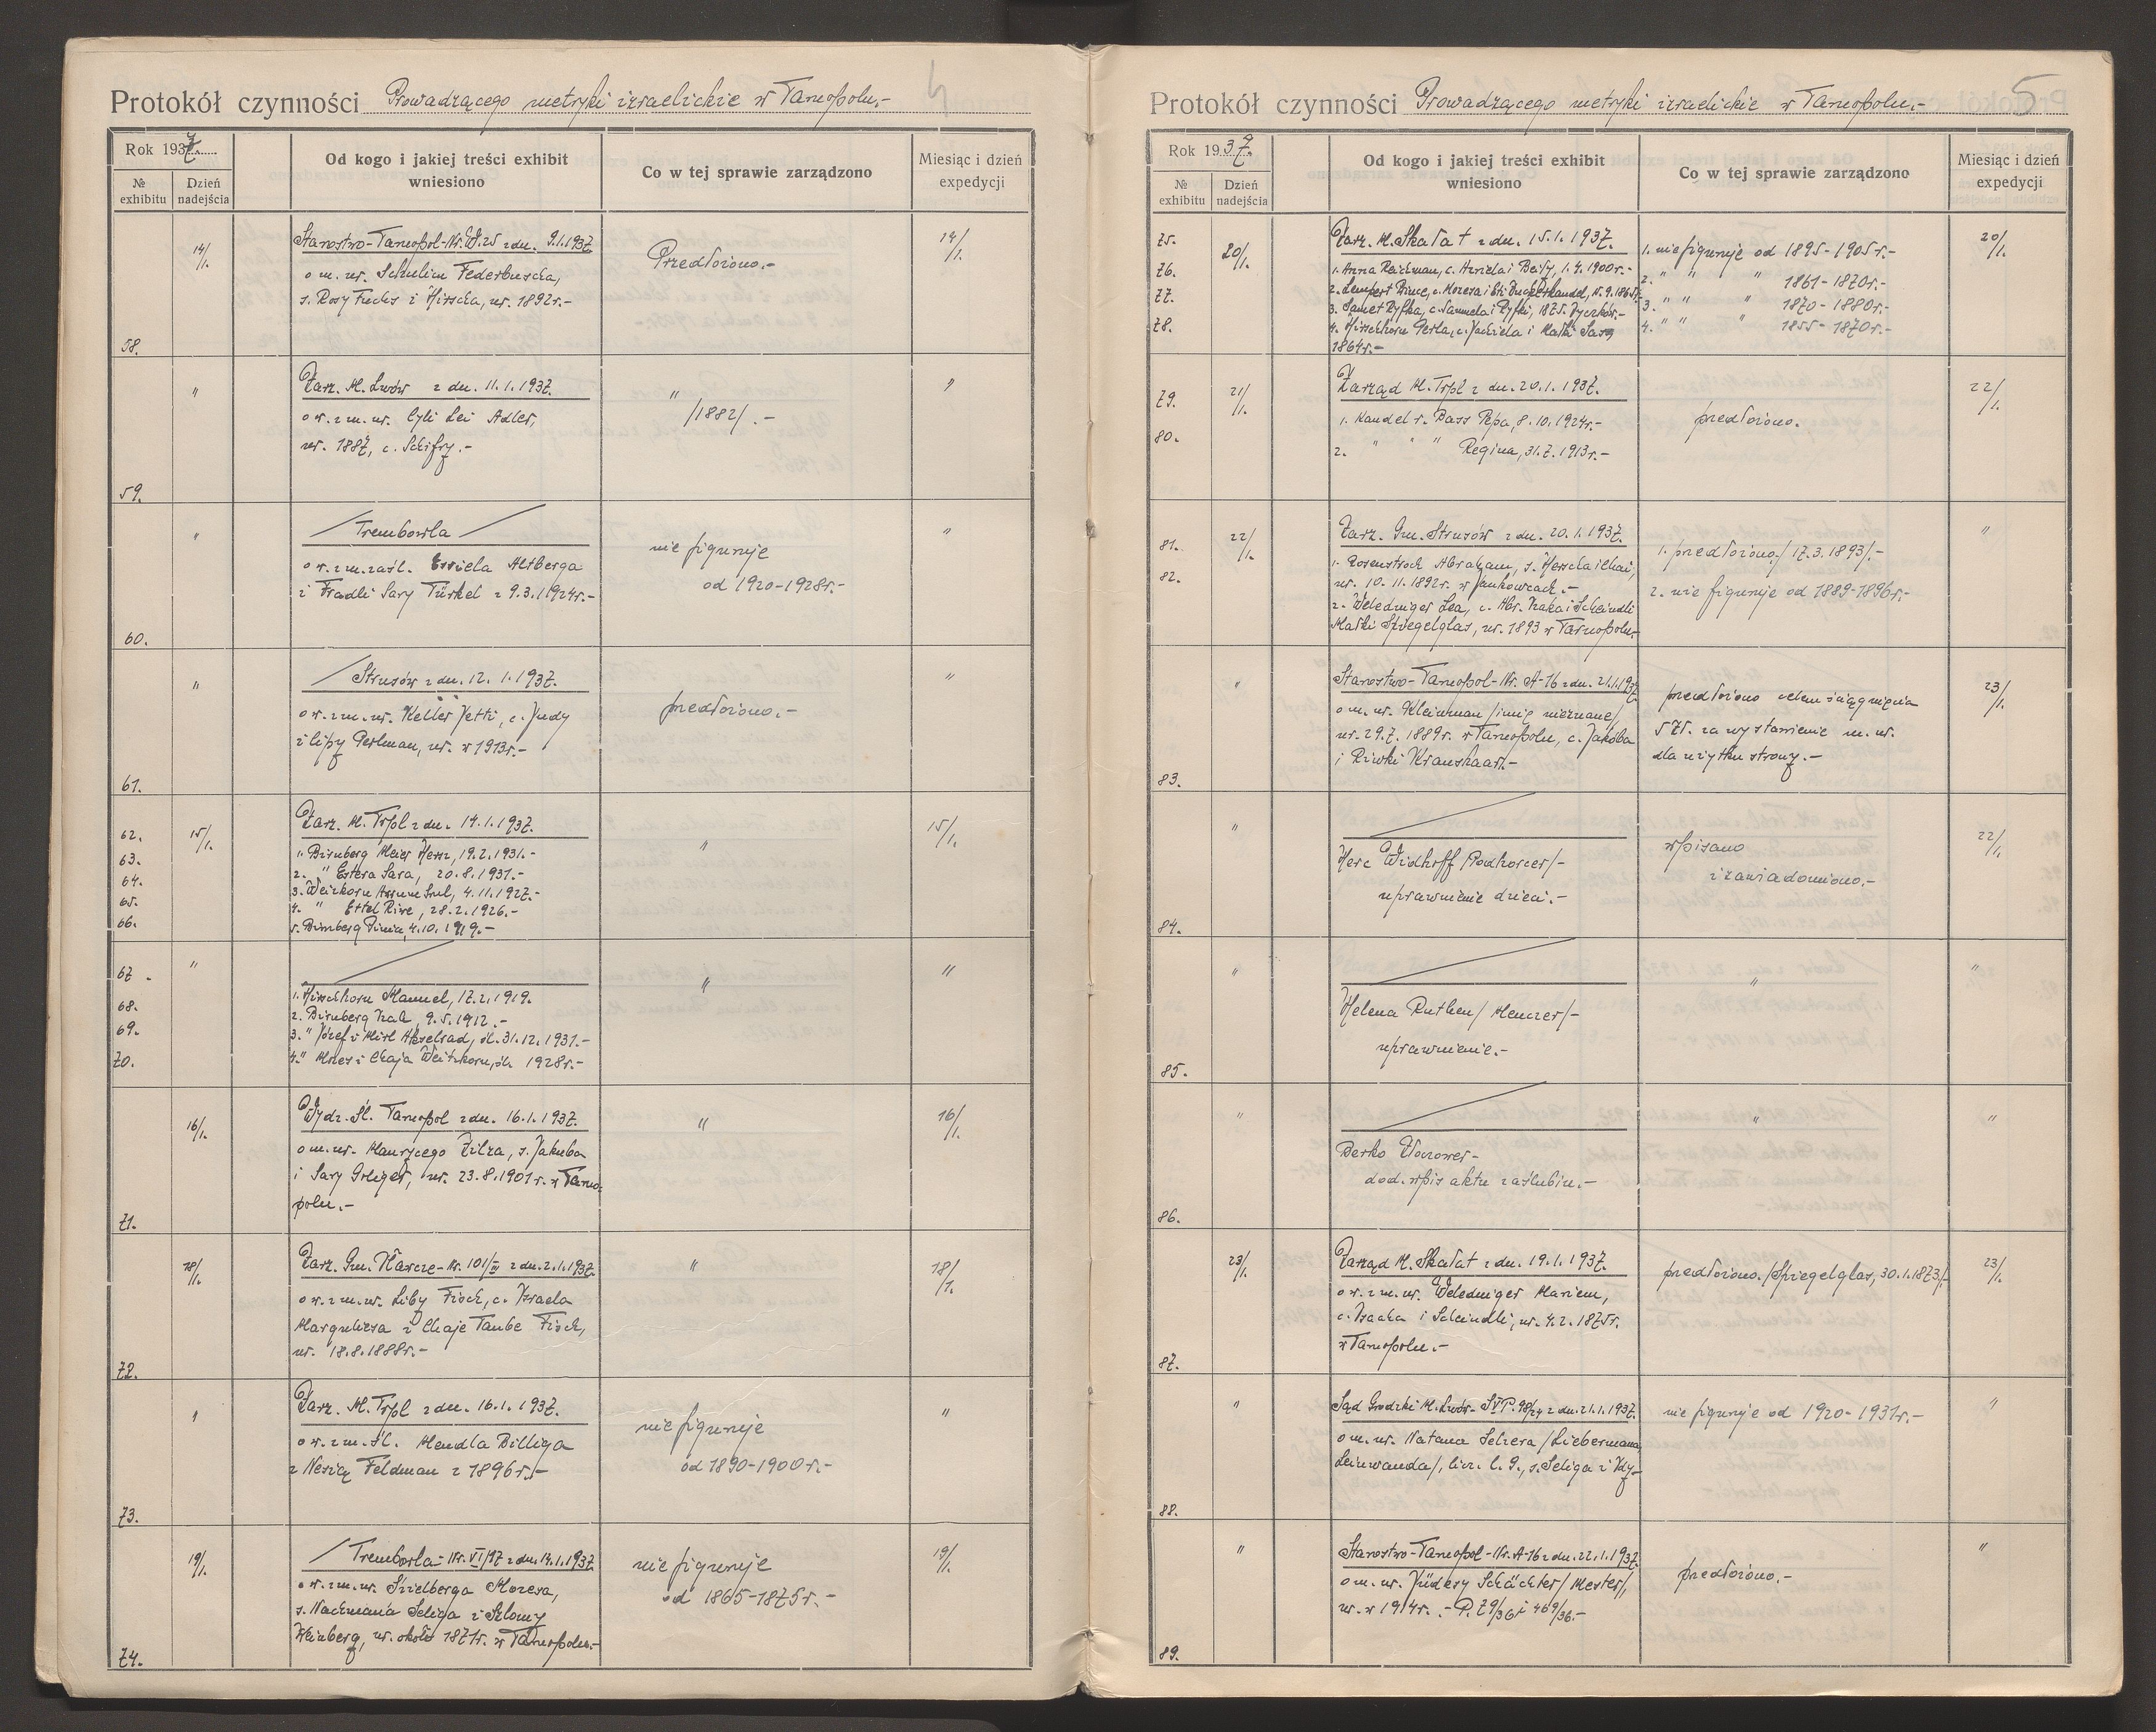 4
Protokół czynności Prowadzącego metryki izraelickie w Tarnopolu.-
Rok 1937.
Od kogo i jakiej treści exhibit wniesiono
Co w tej sprawie zarządzono
Miesiąc i dzień expedycji
№ exhibitu
Dzień nadejścia
14/1. Starostwo-Tarnopol-Nr. 25 z dn. 9.1.1937. Przedłożono.- 14/1.
o m. ur. Schulim Federbuscha,
s. Rosy Fuchs i Hirscha, ur. 1892r.-
58.
" Zarz. M. Lwów z dn. 11.1.1937. " "
o w. z m. ur. Cyli Lei Adler, /1882/.-
ur. 1887, c. Schifry.-
59.
" Trembowla nie figuruje "
o w. z m. zaśl. Altberga od 1920-1928r.-
i Fradli Sary Türkel z 9.3.1924r.-
60.
" Strusów z dn. 12.1.1937. "
o w. z m. ur. Keller Jetti, c. Judy przedłożono.-
i Cipy Perlman, ur. w 1913r.-
61.
62. 15/1. Zarz. M. Trpl z dn. 14.1.1937. " 15/1.
63. 1. Birnberg Meier Hersz, 19.2.1931.-
64. 2. " Estera Sara, 20.8.1931.-
65. 3. Weizkorn Srul, 4.11.1927.-
4. " Ettel Riwe, 28.2.1926.-
66. 5. Birnberg Pinia, 4.10.1919.-
67. " " "
1. Hirschhorn Manuel, 17.2.1919.
68. 2. Birnberg Izak, 9.5.1912.-
69. 3. " Józef i Mirl Akselrad, śl. 31.12.1931.-
70. 4. " Mozes i Chaja Weitzkorn, śl. 1928r.-
16/1. Wydz. Śl. Tarnopol z dn. 16.1.1937. " 16/1.
o m. ur. Maurycego Zilza, s. Jakuba
i Sary Grliger, ur. 23.8.1901r. w Tarno-
71. polu.-
18/1. Zarz. Gm. - Nr. 101/III z dn. 2.1.1937. " 18/1.
o w. z m. ur. Liby Fisch, c. Izraela
Marguliesa i Chaje Taube Fisch,
ur. 18.8.1888r.-
72.
" Zarz. M. Trpl z dn. 16.1.1937. nie figuruje "
o w. z m. śl. Mendla Billiga od 1890-1900r.-
z Nesią Feldman z 1896r.-
73.
19/1. Trembowla-Nr. VI/97 z dn. 14.1.1937. nie figuruje 19/1.
o w. z m. ur. Mozesa, od 1865-1875r.-
s. Nachmana Seliga i Szlomy
Weinberg, ur. około 1871r. w Tarnopolu.-
74.
5
Protokół czynności Prowadzącego metryki izraelickie w Tarnopolu.-
Rok 1937.
Od kogo i jakiej treści exhibit wniesiono
Co w tej sprawie zarządzono
Miesiąc i dzień expedycji
№ exhibitu
Dzień nadejścia
75. 20/1. Zarz. M. Skałat z dn. 15.1.1937. 1. nie figuruje od 1895-1905r.- 20/1.
76. 1. Anna Reichman, c. Azriela i Beily, 1.4.1900r.- 2. " " " 1861-1870r.-
77. 2. Lempert Bince, c. Mozesa i Eti Zuckerkandel, 15.9.1865r. 3. " " " 1870-1880r.-
78. 3. Samet Ryfka, c. Samuela i Ryfki, 1875. 4. " " " 1855-1870r.-
4. Hirschhorn Perla, c. Jachiela i Matki Sary
1864r.-
79. 21/1. Zarząd M. Trpl z dn. 20.1.1937. 22/1.
1. Kandel v. Bass Pepa, 8.10.1924r.- przedłożono.
80. 2. " " " Regina, 31.7.1913r.-
81. 22/1. Zarz. Gm. Strusów z dn. 20.1.1937. "
1. Rosenstock Abraham, s. Herscha i Chai, 1. przedłożono./17.3.1893/.-
82. ur. 10.11.1892r. w Jankowcach.- 2. nie figuruje od 1889-1896r.-
2. Weledniger Lea, c. Abr. Izaka i Scheindli
Małki Spiegelglas, ur. 1893 w Tarnopolu.-
" Starostwo-Tarnopol-Nr. A-16 z dn. 21.1.1937. przedłożono celem ściągnięcia 23/1.
o m. ur. Kleinman /imię nieznane/ 5 Zł. za wystawienie m. ur.
ur. 29.7.1889r. w Tarnopolu, c. Jakóba dla użytku strony.-
i Riwki Kraushaar.-
83.
" wpisano 22/1.
Herc Widhoff /Podhorcer/- i zawiadomiono.-
uprawnienie dzieci.-
84.
" " "
Helena Ruthen /Menczer/-
uprawnienie.-
85.
" " "
Berko Złoczower-
dod. wpis aktu zaślubin.-
86.
23/1. Zarząd M. Skałat z dn. 19.1.1937. przedłożono./Spiegelglas, 30.1.1873/.- 23/1.
o w. z m. ur. Weledniger Mariem,
c. Izaaka i Scheindli, ur. 4.2.1875r.
w Tarnopolu.-
87.
" Sąd Grodzki M. Lwów- 98/24 z dn. 21.1.1937. nie figuruje od 1920-1931r.- "
o m. ur. Natana Scherera /Liebermana,
Leinwanda/, s. Seliga i Idy-
88.
" Starostwo-Tarnopol-Nr. A-16 z dn. 22.1.1937. "
o m. ur. Schächter/Mester/, przedłożono.-
ur. w 1914r.- P. 79/36 i 469/36.-
89.